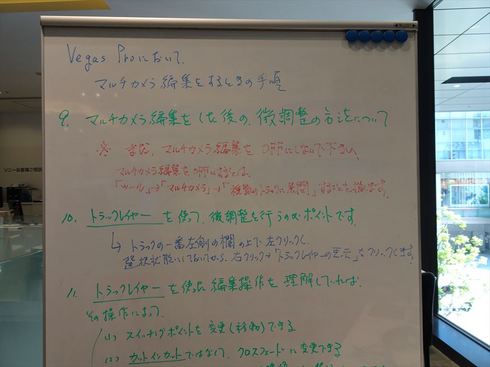 Vegas Proにおいて、
マルチカメラ編集をするときの手順
9. マルチカメラ編集をした後の、微調整の方法について
※ まだ、マルチカメラ編集を OFFにしないで下さい。
マルチカメラ編集をOFFにするときは、
「ツール」→「マルチカメラ」→「複数のトラックに展開」
10. トラックレイヤーを使って、微調整を行うのがポイントです。
↳ トラックの一番左側の欄の上で左クリックし、
選択状態にしておいてから、右クリック→「トラックレイヤーの表示」をクリックします。
11. トラックレイヤーを使った編集操作を理解していれば、
その操作によって、
(1) スイッチングポイントを変更(移動)できる
(2) カットインカットではなくて、クロスフェードに変更できる